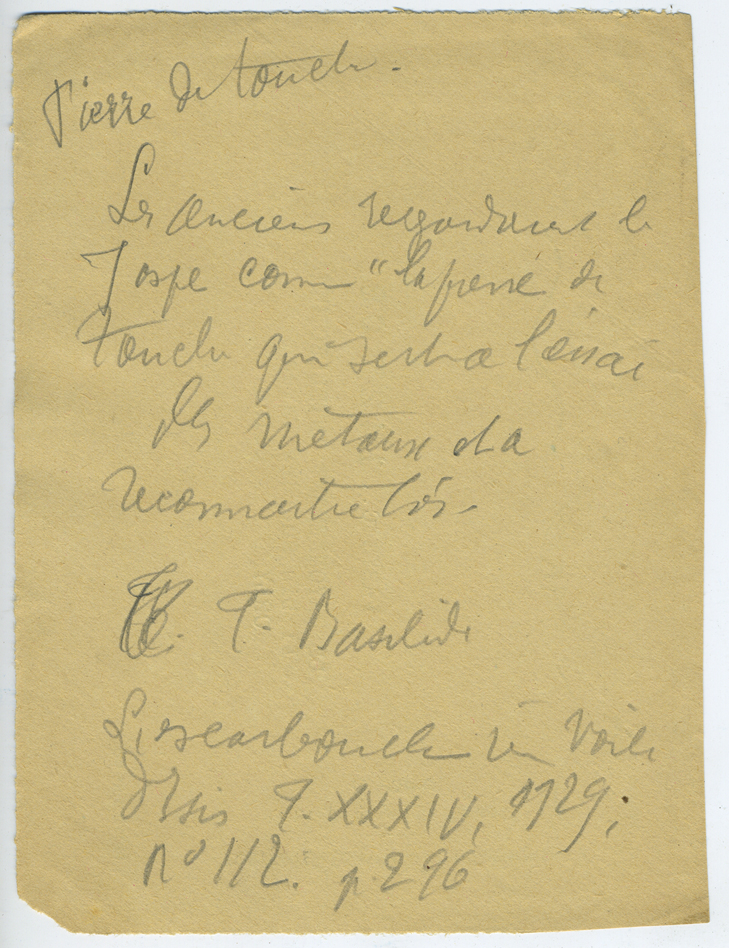 Pierre de touche.
Les anciens regardaient le
Jaspe comme "la pierre de
touche qui sert à l'essai
des métaux et à
reconnaître l'or.
T. Basilide
L'escarboucle in Voile
d'Isis T. XXXIV, 1929,
n° 112. p. 296